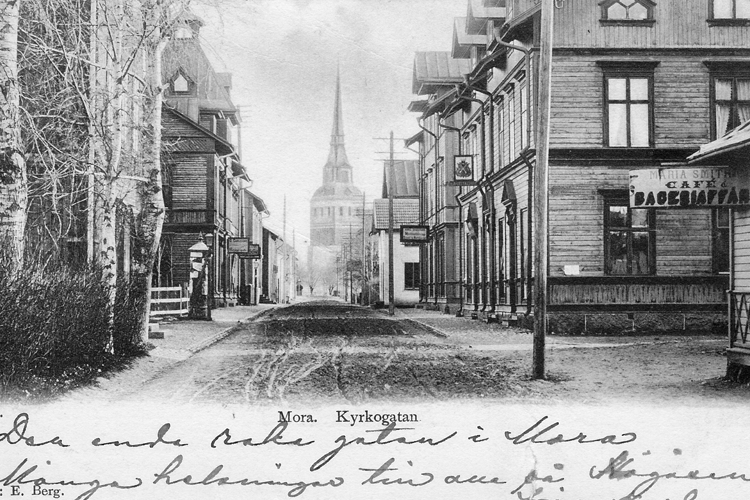 MARIA SMITH
CAFÉ
BAGERIAFFÄR
Mora. Kyrkogatan
Den enda raka gatan i Mora
Många helsningar till alla på
: E. Berg.